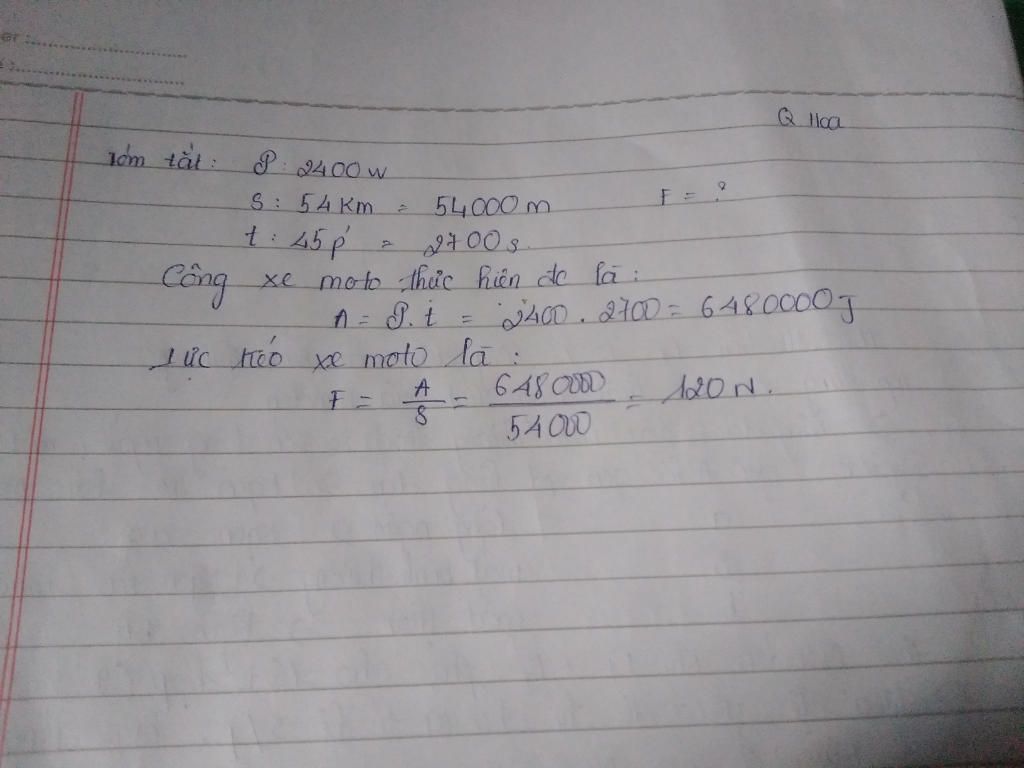 Q Hoa
Tóm tắt: P: 2400w
S: 54 Km = 54000 m F = ?
t: 45p' = 2700s.
Công xe moto thực hiên đc là:
A = P.t = 2400 . 2700 = 6480000J
Lực kéo xe moto là:
F = A/S = 6480000/54000 = 120 N.